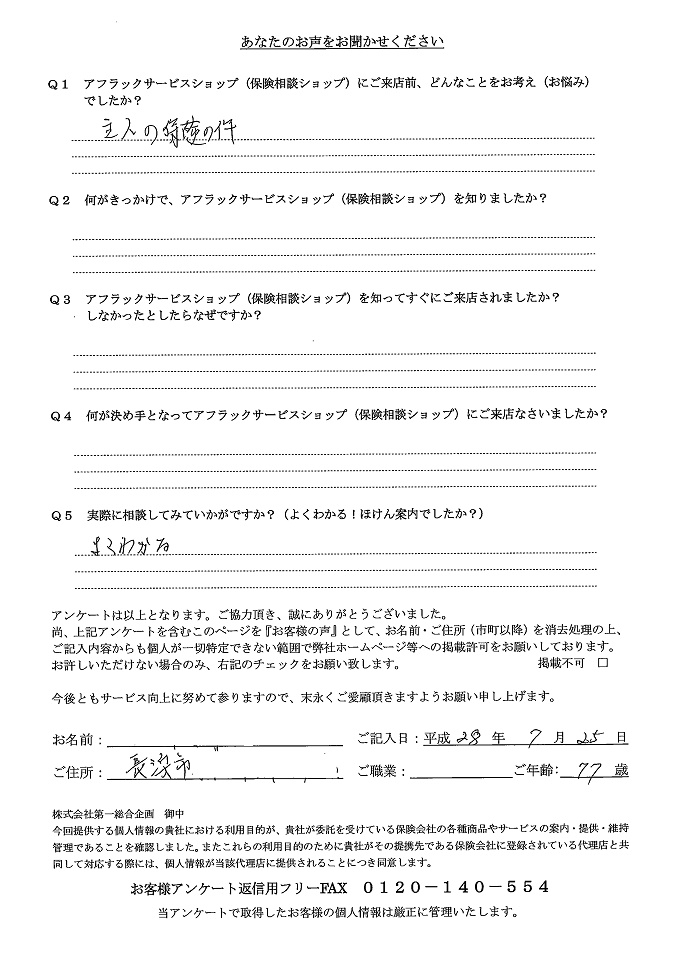 あなたのお声をお聞かせください
Q1 アフラックサービスショップ（保険相談ショップ）にご来店前、どんなことをお考え（お悩み）
でしたか？
主人の保険の件
Q2 何がきっかけで、アフラックサービスショップ（保険相談ショップ）を知りましたか？
Q3 アフラックサービスショップ（保険相談ショップ）を知ってすぐにご来店されましたか？
しなかったとしたらなぜですか？
Q4 何が決め手となってアフラックサービスショップ（保険相談ショップ）にご来店なさいましたか？
Q5 実際に相談してみていかがですか？（よくわかる！ほけん案内でしたか？）
よくわかる
アンケートは以上となります。ご協力頂き、誠にありがとうございました。
尚、上記アンケートを含むこのページを『お客様の声』として、お名前・ご住所（市町以降）を消去処理の上、
ご記入内容からも個人が一切特定できない範囲で弊社ホームページ等への掲載許可をお願いしております。
お許しいただけない場合のみ、右記のチェックをお願い致します。 掲載不可 □
今後ともサービス向上に努めて参りますので、末永くご愛顧頂きますようお願い申し上げます。
お名前： ご記入日：平成 28 年 7 月 25 日
ご住所： 長浜市 ご職業： ご年齢：77 歳
株式会社第一総合企画 御中
今回提供する個人情報の貴社における利用目的が、貴社が委託を受けている保険会社の各種商品やサービスの案内・提供・維持
管理であることを確認しました。またこれらの利用目的のために貴社がその提携先である保険会社に登録されている代理店と共
同して対応する際には、個人情報が当該代理店に提供されることにつき同意します。
お客様アンケート返信用フリーFAX 0120－140－554
当アンケートで取得したお客様の個人情報は厳正に管理いたします。